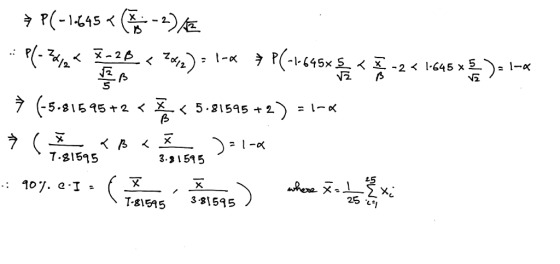 ⇒ P(-1.645 < (x̄/β - 2)/√2
∴ P(-z_{α/2} < (x̄ - 2β)/((√2/5)β) < z_{α/2}) = 1-α ⇒ P(-1.645 × 5/√2 < x̄/β - 2 < 1.645 × 5/√2) = 1-α
⇒ (-5.81595 + 2 < x̄/β < 5.81595 + 2) = 1-α
⇒ (x̄/7.81595 < β < x̄/3.81595) = 1-α
∴ 90% C.I = (x̄/7.81595, x̄/3.81595) where x̄ = 1/25 Σ_{i=1}^{25} x_i